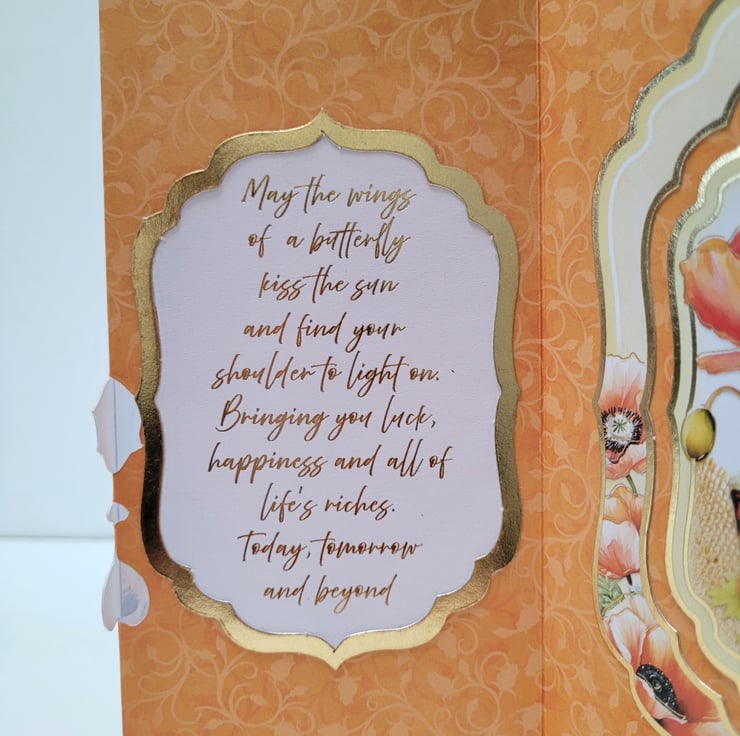 May the wings
of a butterfly
kiss the sun
and find your
shoulder to light on.
Bringing you luck,
happiness and all of
life's riches.
Today, tomorrow
and beyond